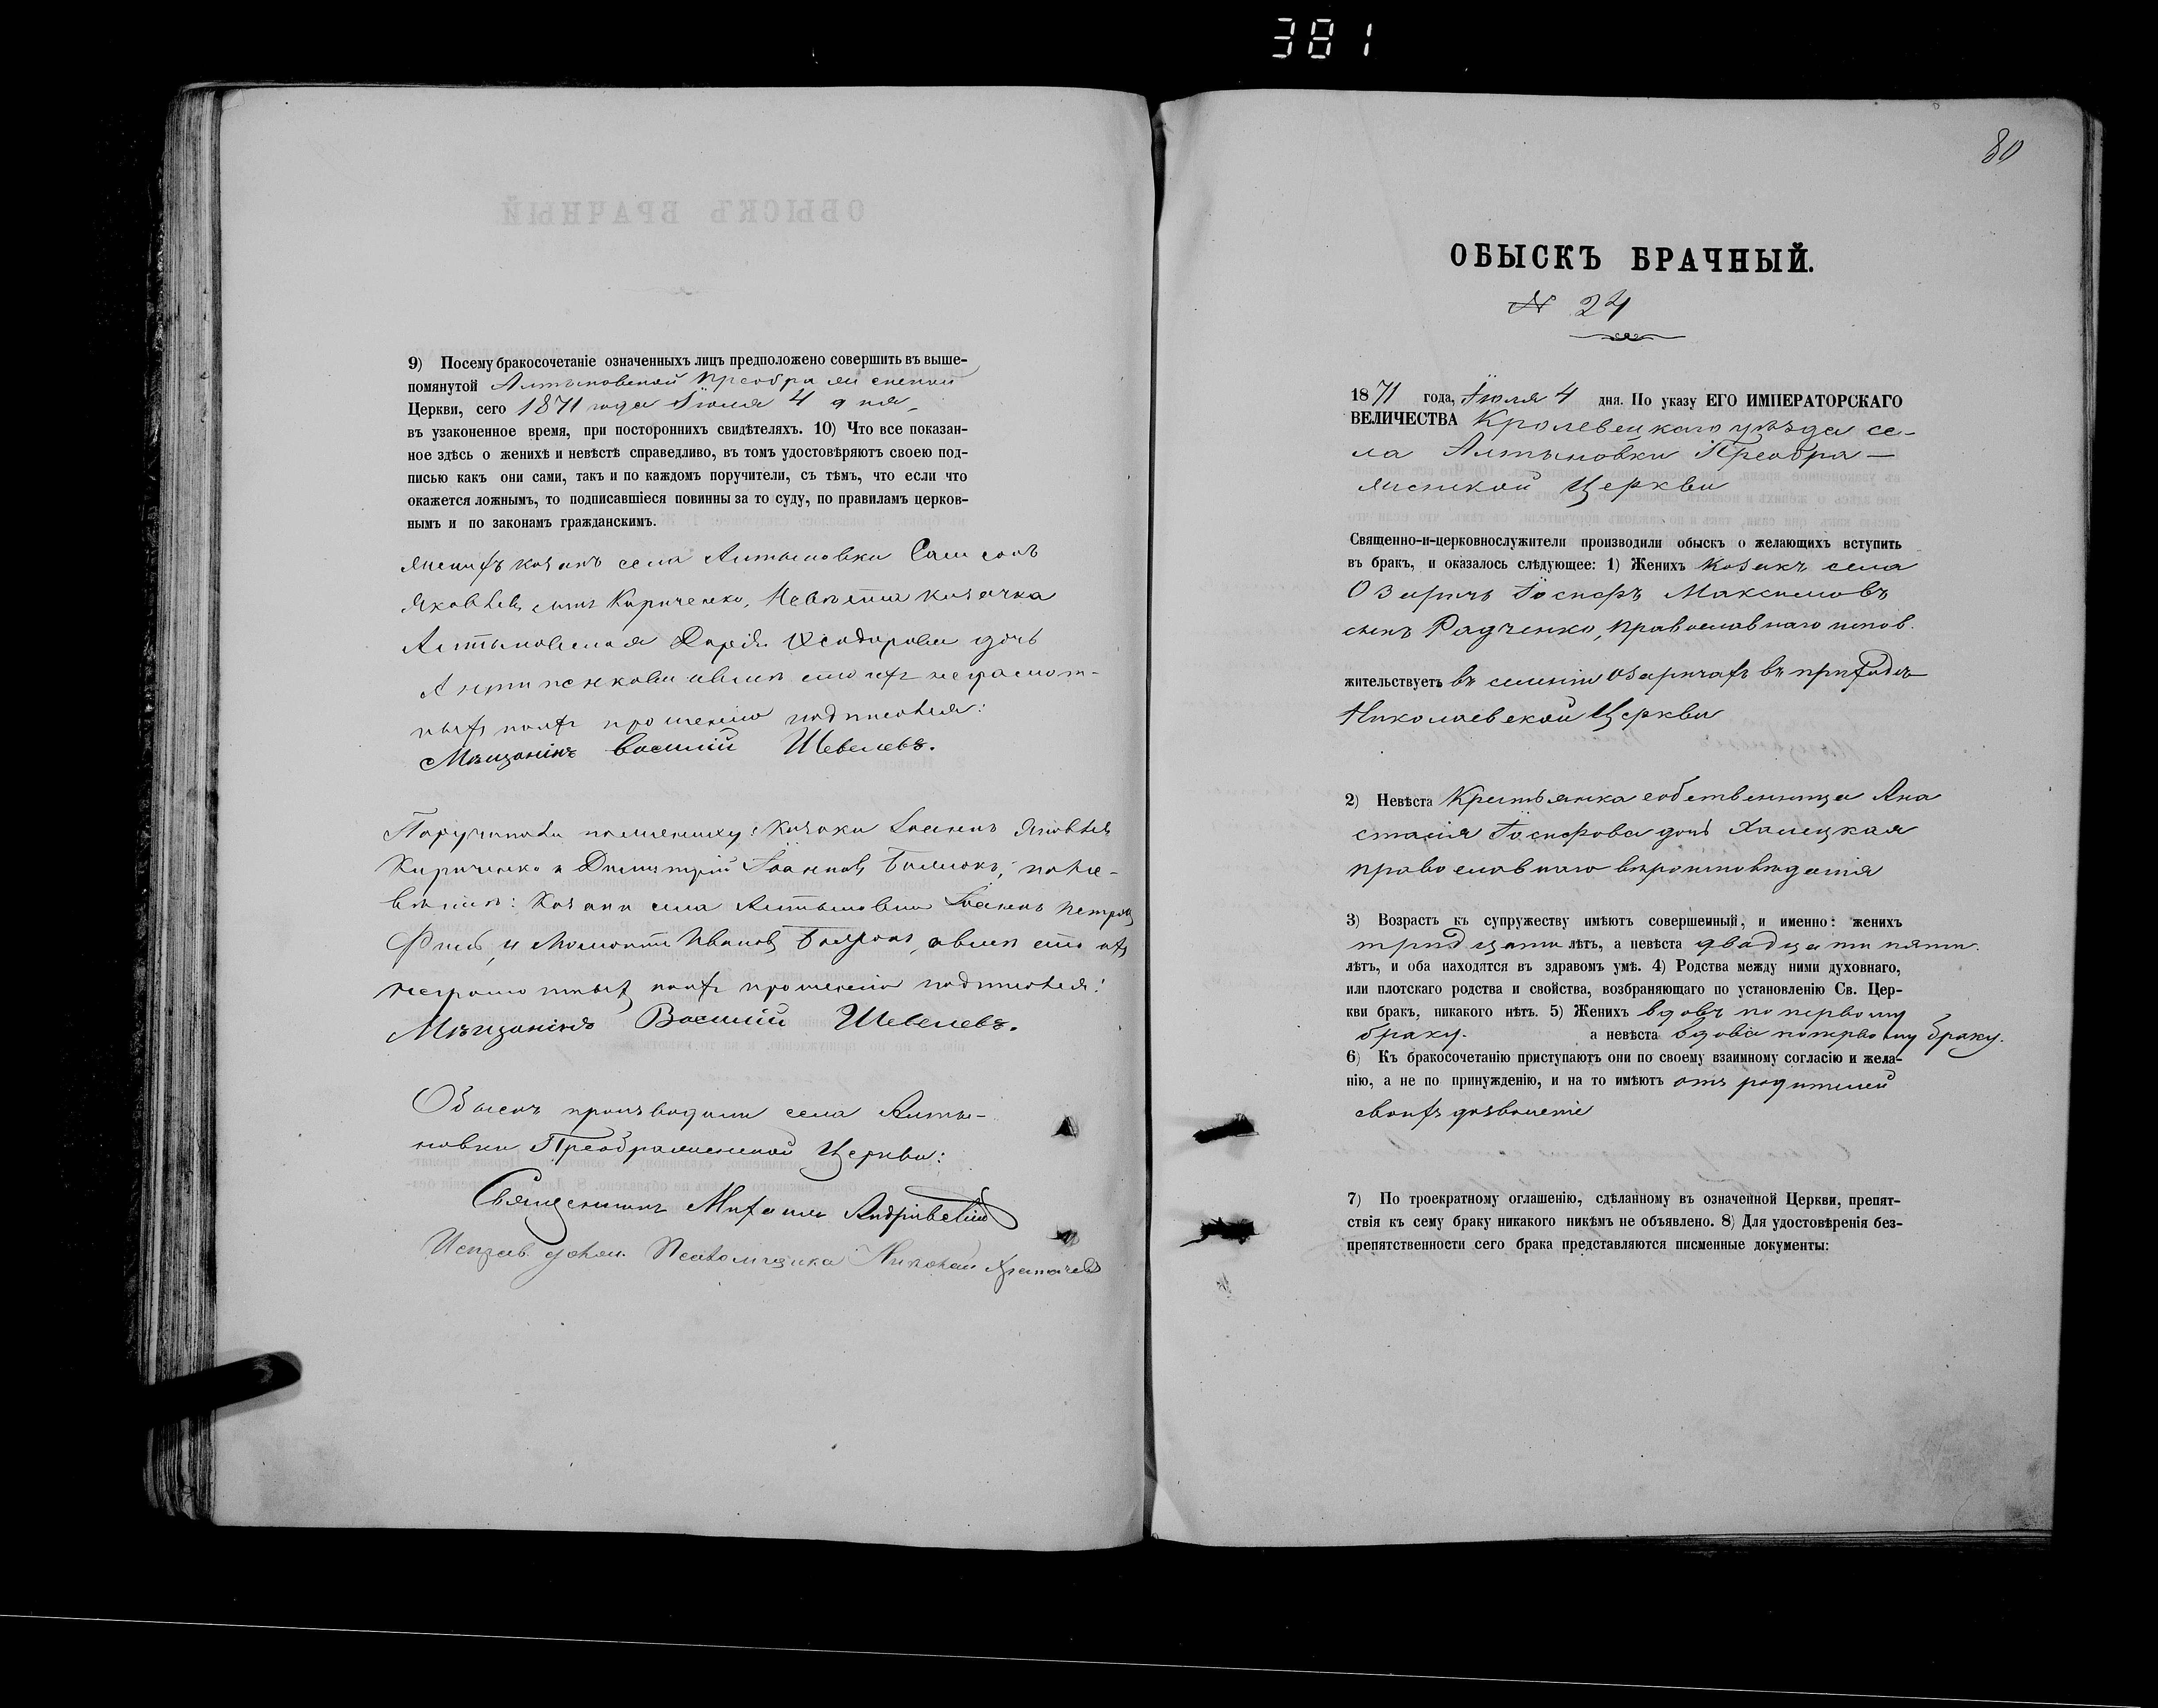 381
9) Посему бракосочетаніе означенныхъ лицъ предположено совершить въ выше-
помянутой Алтыновской Преображенской
Церкви, сего 1871 года Іюля 4 дня,
въ узаконенное время, при постороннихъ свидѣтеляхъ. 10) Что все показан-
ное здѣсь о женихѣ и невѣстѣ справедливо, въ томъ удостовѣряютъ своею под-
писью какъ они сами, такъ и по каждомъ поручители, съ тѣмъ, что если что
окажется ложнымъ, то подписавшіеся повинны за то суду, по правиламъ церков-
нымъ и по законамъ гражданскимъ.
женихъ козакъ села Алтыновки Самсонъ
Яковлевъ сынъ Кириченко, Невѣста козачка
Алтыновская Дарія Ѳеодорова дочь
а вмѣсто ихъ неграмот-
ныхъ по ихъ прошенію подписался:
Мѣщанинъ Василій Шевелевъ.
Поручители по женихѣ: козаки Іоаннъ Яковлев
Кириченко и Димитрій Іоаннов, по не-
вѣстѣ: Козаки села Алтыновки Іоаннъ Петров
и Иванов, а вмѣсто ихъ
неграмотныхъ по ихъ прошенію подписался:
Мѣщанинъ Василій Шевелевъ.
Обыскъ производили села Алты-
новки Преображенской Церкви:
Священникъ Михаилъ Андріевскій
Исправ. долж. Псаломщика Николай
80
ОБЫСКЪ БРАЧНЫЙ.
№ 24
1871 года, Іюля 4 дня. По указу ЕГО ИМПЕРАТОРСКАГО
ВЕЛИЧЕСТВА Кролевецкаго уѣзда се-
ла Алтыновки Преобра-
женской Церкви
Священно-и-церковнослужители производили обыскъ о желающихъ вступить
въ бракъ, и оказалось слѣдующее: 1) Женихъ Козакъ села
Озаричъ Іосифъ Максимовъ
сынъ Радченко, православнаго испов.
жительствуетъ въ селеніи Озаричахъ въ приходѣ
Николаевской Церкви
2) Невѣста Крестьянка собственница Ана
стасія Іосифова дочь Халецкая
православнаго вѣроисповѣданія
3) Возрастъ къ супружеству имѣютъ совершенный, и именно: женихъ
тридцати лѣтъ, а невѣста двадцати пяти.
лѣтъ, и оба находятся въ здравомъ умѣ. 4) Родства между ними духовнаго,
или плотскаго родства и свойства, возбраняющаго по установленію Св. Цер-
кви бракъ, никакого нѣтъ. 5) Женихъ вдовъ по первому
браку. а невѣста вдова по первому браку.
6) Къ бракосочетанію приступаютъ они по своему взаимному согласію и жела-
нію, а не по принужденію, и на то имѣютъ отъ родителей
своихъ дозволеніе
7) По троекратному оглашенію, сдѣланному въ означенной Церкви, препят-
ствія къ сему браку никакого никѣмъ не объявлено. 8) Для удостовѣренія без-
препятственности сего брака представляются писменные документы: